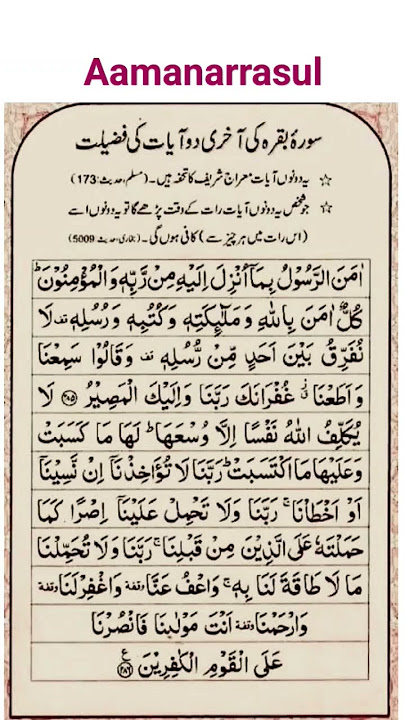 Aamanarrasul
سورۂ بقرہ کی آخری دو آیات کی فضیلت
☆ یہ دونوں آیات معراج شریف کا تحفہ ہیں۔ (مسلم، حدیث: 173)
☆ جو شخص یہ دونوں آیات رات کے وقت پڑھے گا تو یہ دونوں اسے
(اس رات میں ہر چیز سے) کافی ہوں گی۔ (بخاری، حدیث 5009)
اٰمَنَ الرَّسُوْلُ بِمَاۤ اُنْزِلَ اِلَیْهِ مِنْ رَّبِّهٖ وَالْمُؤْمِنُوْنَ ؕ
كُلٌّ اٰمَنَ بِاللّٰهِ وَمَلٰٓئِكَتِهٖ وَكُتُبِهٖ وَرُسُلِهٖ قف لَا
نُفَرِّقُ بَیْنَ اَحَدٍ مِّنْ رُّسُلِهٖ قف وَقَالُوْا سَمِعْنَا
وَاَطَعْنَا ٘ غُفْرَانَكَ رَبَّنَا وَاِلَیْكَ الْمَصِیْرُ ﴿۲۸۵﴾ لَا
یُكَلِّفُ اللّٰهُ نَفْسًا اِلَّا وُسْعَهَا ؕ لَهَا مَا كَسَبَتْ
وَعَلَیْهَا مَا اكْتَسَبَتْ ؕ رَبَّنَا لَا تُؤَاخِذْنَاۤ اِنْ نَّسِیْنَاۤ
اَوْ اَخْطَاْنَا ۚ رَبَّنَا وَلَا تَحْمِلْ عَلَیْنَاۤ اِصْرًا كَمَا
حَمَلْتَهٗ عَلَی الَّذِیْنَ مِنْ قَبْلِنَا ۚ رَبَّنَا وَلَا تُحَمِّلْنَا
مَا لَا طَاقَةَ لَنَا بِهٖ ۚ وَاعْفُ عَنَّا وقفة وَاغْفِرْ لَنَا وقفة
وَارْحَمْنَا وقفة اَنْتَ مَوْلٰىنَا فَانْصُرْنَا
عَلَی الْقَوْمِ الْكٰفِرِیْنَ ﴿۲۸۶﴾ ع